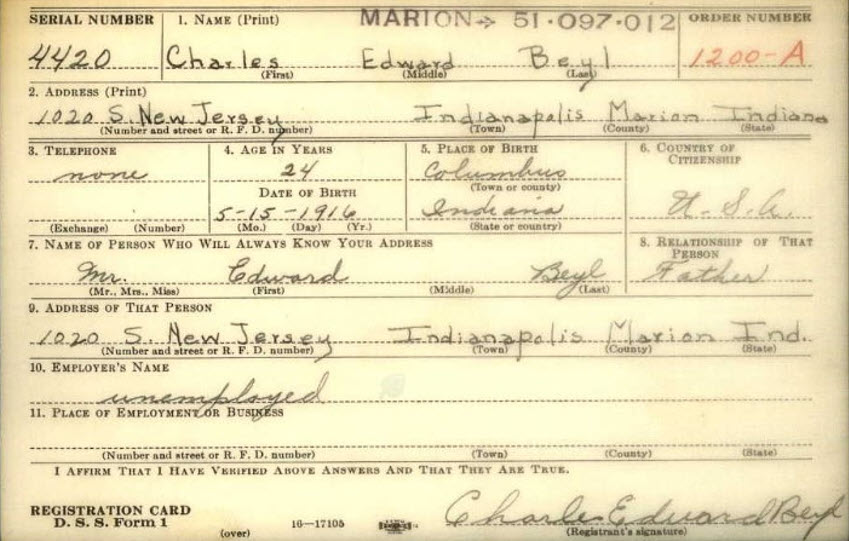 SERIAL NUMBER 1. NAME (Print) MARION→ 51·097·012 ORDER NUMBER
4420 Charles Edward Beyl 1200-A
(First) (Middle) (Last)
2. ADDRESS (Print)
1020 S. New Jersey Indianapolis Marion Indiana
(Number and street or R. F. D. number) (Town) (County) (State)
3. TELEPHONE 4. AGE IN YEARS 5. PLACE OF BIRTH 6. COUNTRY OF CITIZENSHIP
none 24 Columbus
(Town or county)
DATE OF BIRTH
5-15-1916 Indiana U.S.A.
(Exchange) (Number) (Mo.) (Day) (Yr.) (State or country)
7. NAME OF PERSON WHO WILL ALWAYS KNOW YOUR ADDRESS 8. RELATIONSHIP OF THAT PERSON
Mr. Edward Beyl Father
(Mr., Mrs., Miss) (First) (Middle) (Last)
9. ADDRESS OF THAT PERSON
1020 S. New Jersey Indianapolis Marion Ind.
(Number and street or R. F. D. number) (Town) (County) (State)
10. EMPLOYER'S NAME
unemployed
11. PLACE OF EMPLOYMENT OR BUSINESS
(Number and street or R. F. D. number) (Town) (County) (State)
I AFFIRM THAT I HAVE VERIFIED ABOVE ANSWERS AND THAT THEY ARE TRUE.
REGISTRATION CARD
D. S. S. Form 1 (over) 16—17105 Charles Edward Beyl
(Registrant's signature)